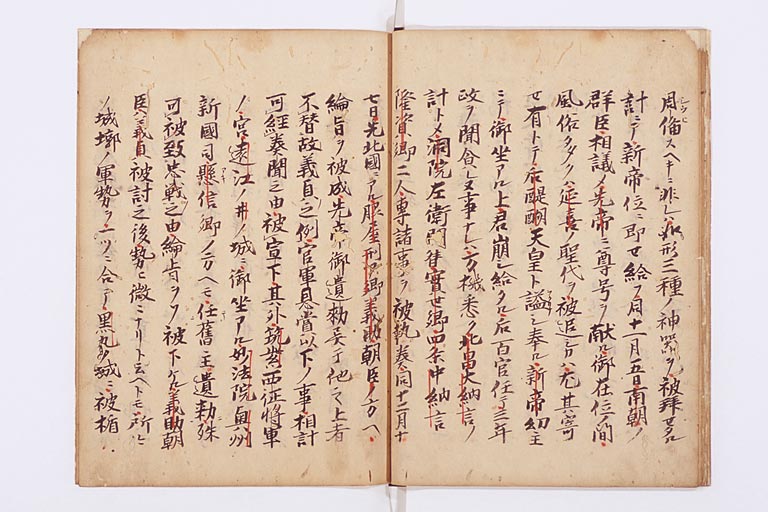 周備スヘキニ非レ𪜈形三種ノ神器ヲ被拜セタル
計ニテ新帝位ニ即セ給フ同十一月五日南朝ノ
群臣相議ノ先帝ニ尊号ヲ献ル御在位間
風俗多クハ延喜ノ聖代ヲ被追シカハ尤其寄
セ有トテ后醍醐天皇ト謚シ奉ル新帝幼主
ニテ御坐アル上君崩シ給タル后百官任三年
政ヲ聞食レヌ事ナレハ万機悉ク北畠大納言ノ
計トメ洞院左衛門督實世卿四条中納言
隆資卿二人専諸事ヲ被執奏同十二月十
七日先北國ニアル脇屋刑ア卿義助朝臣ノ方ヘハ
綸旨ヲ被成先帝御遺勅異于他之上者
不替故義貞之例官軍恩賞以下ノ事相計
可經奏聞之由被宣下其外筑紫西征将軍
ノ宮遠江ノ井ノ城ニ御坐アル妙法院奥州
新國司顕信卿ノ方ヘモ任舊主遺勅殊
可被致忠戦之由綸旨ヲソ被下ケル義助朝
臣ハ義貞被討之後勢ヒ微ニナリト云ヘトモ所々
ノ城塚ノ軍勢ヲ一ツニ合テ黒丸城ニ被楯